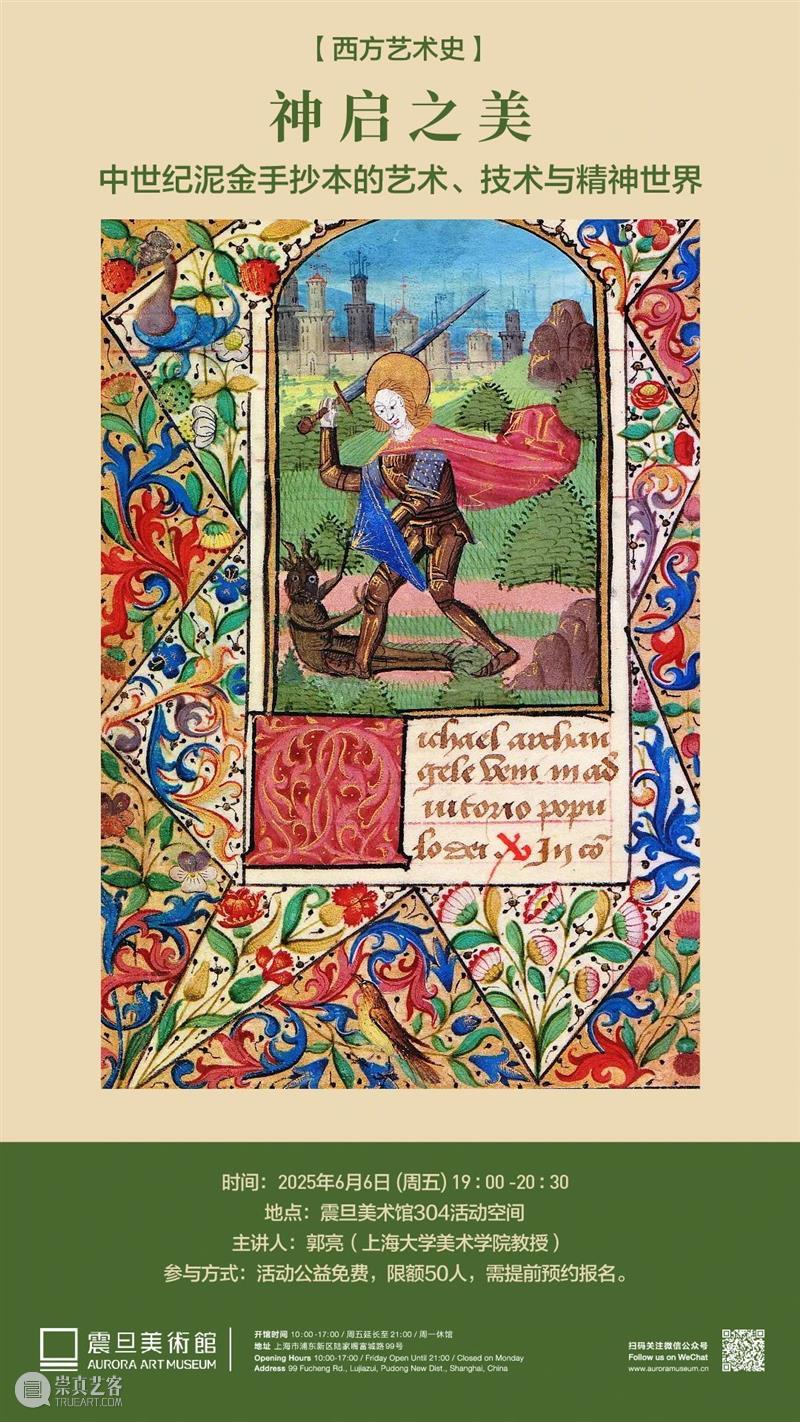 【西方艺术史】
神启之美
中世纪泥金手抄本的艺术、技术与精神世界
ichael archan
gele veni in ad
iutorio popu
lo dei X In co
时间：2025年6月6日 (周五) 19：00 -20：30
地点：震旦美术馆304活动空间
主讲人：郭亮（上海大学美术学院教授）
参与方式：活动公益免费，限额50人，需提前预约报名。
震旦美術館
AURORA ART MUSEUM
开馆时间 10:00-17:00 / 周五延长至 21:00 / 周一休馆
地址 上海市浦东新区陆家嘴富城路99号
Opening Hours 10:00-17:00 / Friday Open Until 21:00 / Closed on Monday
Address 99 Fucheng Rd., Lujiazui, Pudong New Dist., Shanghai, China
扫码关注微信公众号
Follow us on WeChat
www.auroramuseum.cn
崇真艺客
TRUEART.COM